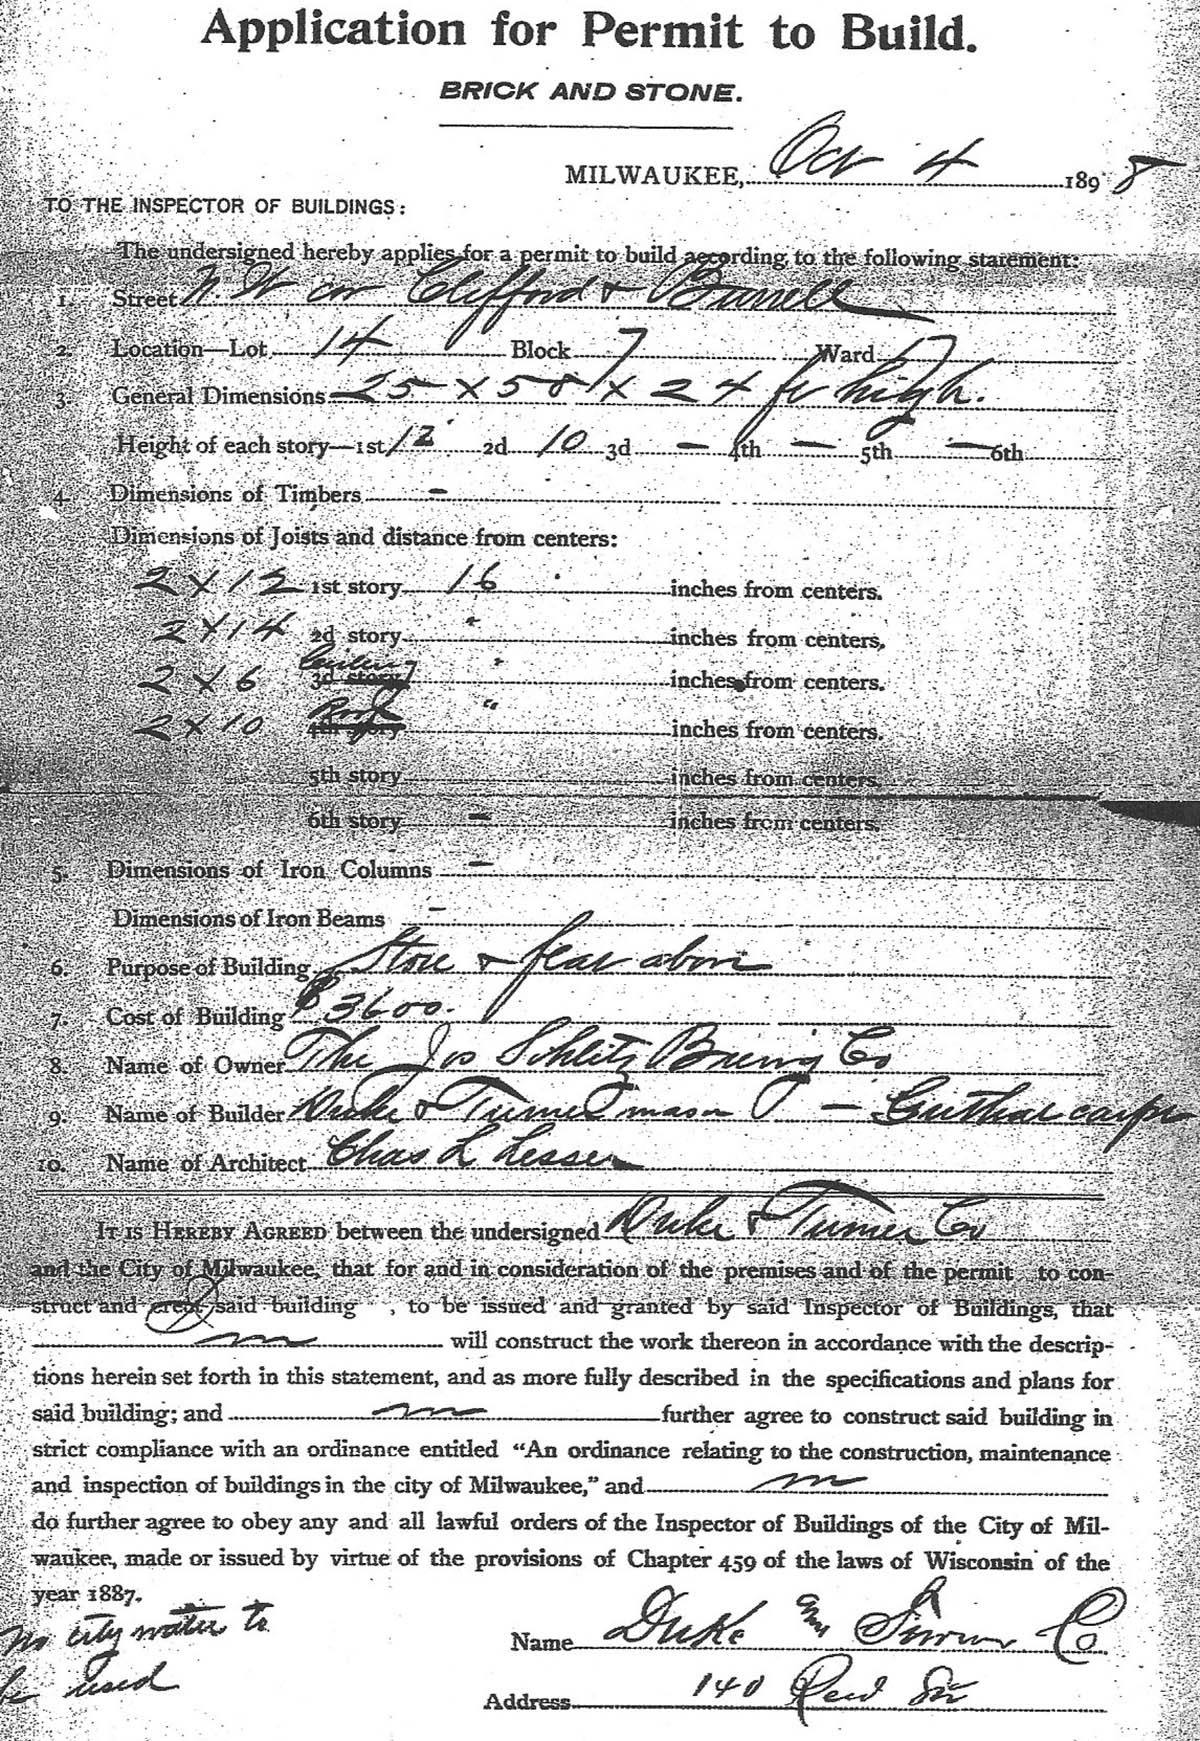 Application for Permit to Build.
BRICK AND STONE.
MILWAUKEE, Oct 4 1898
TO THE INSPECTOR OF BUILDINGS:
The undersigned hereby applies for a permit to build according to the following statement:
1. Street N. W cor Clifford & Burrell
2. Location—Lot 14 Block 7 Ward 17
3. General Dimensions 25 x 58 x 24 ft high.
Height of each story—1st 12 2d 10 3d — 4th — 5th — 6th
4. Dimensions of Timbers —
Dimensions of Joists and distance from centers:
2 x 12 1st story 16 inches from centers.
2 x 14 2d story " inches from centers.
2 x 6 Ceiling 3d story " inches from centers.
2 x 10 Roof 4th story " inches from centers.
5th story inches from centers.
6th story — inches from centers.
5. Dimensions of Iron Columns —
Dimensions of Iron Beams —
6. Purpose of Building Store & flat above
7. Cost of Building $3600.
8. Name of Owner The Jos Schlitz Brewing Co
9. Name of Builder Duke & Turner mason — carptr
10. Name of Architect Chas L Lesser
IT IS HEREBY AGREED between the undersigned Duke & Turner Co
and the City of Milwaukee, that for and in consideration of the premises and of the permit to con-
struct and erect said building , to be issued and granted by said Inspector of Buildings, that
will construct the work thereon in accordance with the descrip-
tions herein set forth in this statement, and as more fully described in the specifications and plans for
said building; and further agree to construct said building in
strict compliance with an ordinance entitled “An ordinance relating to the construction, maintenance
and inspection of buildings in the city of Milwaukee,” and
do further agree to obey any and all lawful orders of the Inspector of Buildings of the City of Mil-
waukee, made or issued by virtue of the provisions of Chapter 459 of the laws of Wisconsin of the
year 1887.
No city water to
be used
Name Duke and Turner Co.
Address 140 Reed Str